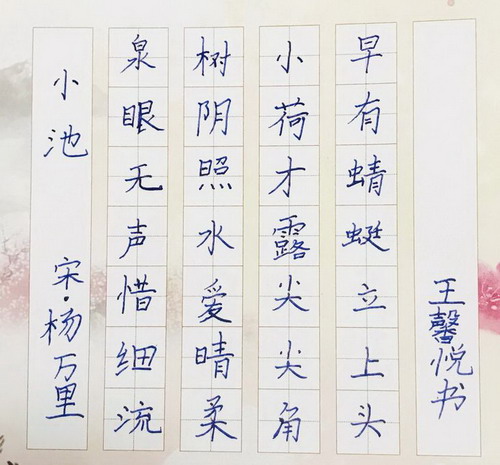 小池 宋·杨万里
泉眼无声惜细流
树阴照水爱晴柔
小荷才露尖尖角
早有蜻蜓立上头
王馨悦书